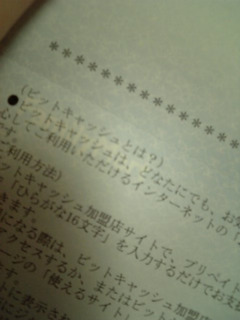 ＊＊＊＊＊＊＊＊＊＊＊＊
(ビットキャッシュとは？)
●ビットキャッシュは、どなたにでも、お
心してご利用いただけるインターネットの
です。
ご利用方法)
ットキャッシュ加盟店サイトで、プリペイド
「ひらがな16文字」を入力するだけでお支
きます。
になる際は、ビットキャッシュ加盟店
アクセスするか、またはビット
ージの「使えるサイト」
に表示され